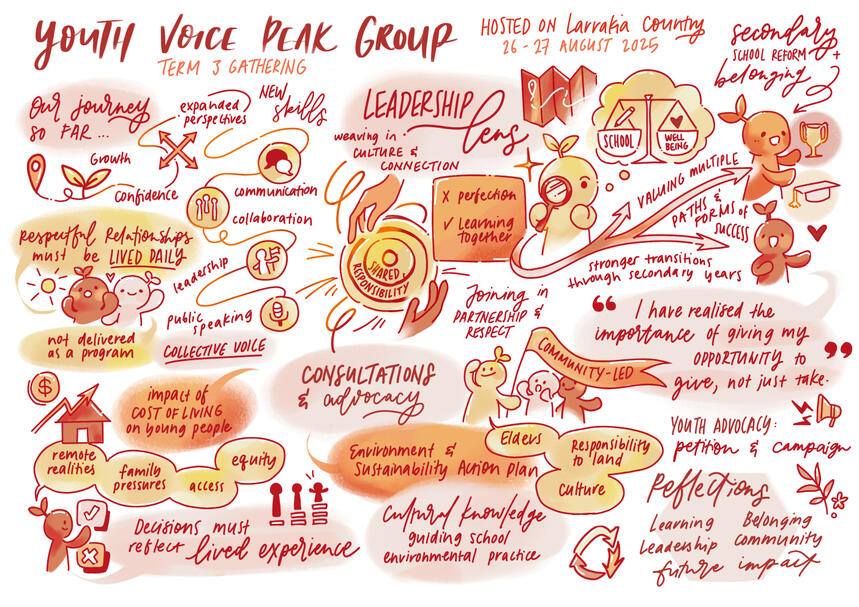 YOUTH VOICE PEAK GROUP
TERM 3 GATHERING
HOSTED ON Larrakia Country
26 - 27 AUGUST 2025
secondary
SCHOOL REFORM +
belonging
Our journey
SO FAR ...
expanded
perspectives
NEW
skills
Growth
confidence
communication
collaboration
leadership
public
speaking
COLLECTIVE VOICE
LEADERSHIP
lens
weaving in
CULTURE &
CONNECTION
X perfection
✓ Learning
together
SCHOOL
WELL
BEING
VALUING MULTIPLE
PATHS &
FORMS of
SUCCESS
stronger transitions
through secondary years
Respectful Relationships
must be LIVED DAILY
not delivered
as a program
SHARED
RESPONSIBILITY
Joining in
PARTNERSHIP &
RESPECT
COMMUNITY-LED
“ I have realised the
importance of giving my
OPPORTUNITY to
give, not just take. ”
CONSULTATIONS
& advocacy
$
impact of
COST OF LIVING
on young people
remote
realities
family
pressures
access
equity
Decisions must
reflect lived experience
Environment &
Sustainability Action Plan
Elders
Responsibility
to land
culture
Cultural knowledge
guiding school
environmental practice
YOUTH ADVOCACY:
petition & campaign
Reflections
Learning Belonging
Leadership community
future impact